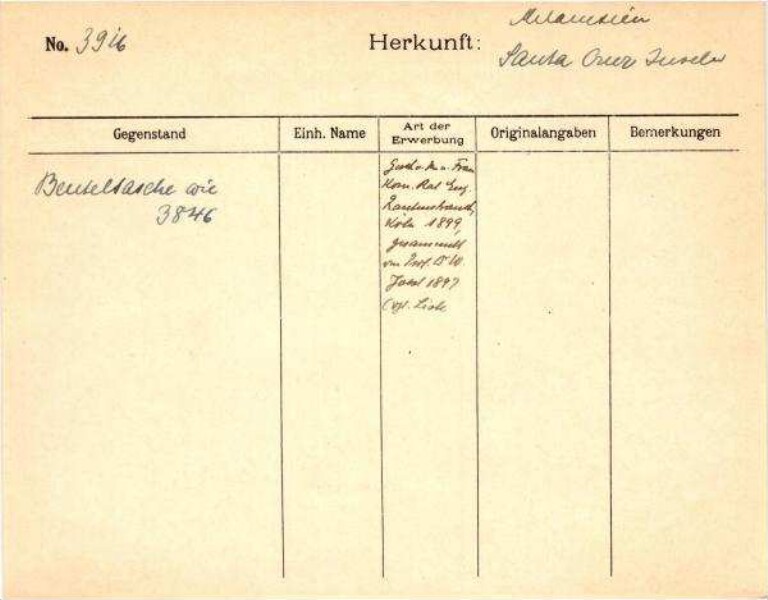 No. 3916
Herkunft:
Melanesien
Santa Cruz Inseln
Gegenstand
Einh. Name
Art der Erwerbung
Originalangaben
Bemerkungen
Beuteltasche wie
3846
Gesch. v. Frau
Kom. Rat Eug.
Rautenstrauch,
Köln 1899,
gesammelt
von Prof. Dr W.
Joest 1897
(vgl. Liste